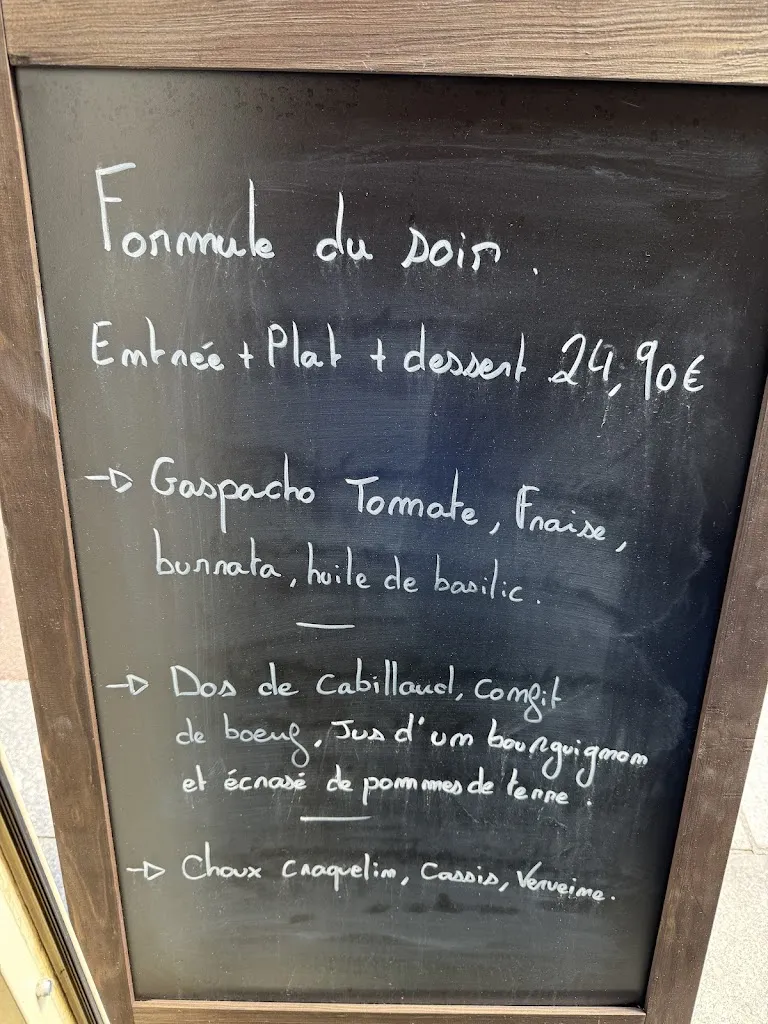 Formule du soir.
Entrée + Plat + dessert 24,90€
→ Gaspacho Tomate, Fraise,
burrata, huile de basilic.
→ Dos de Cabillaud, Confit
de boeuf, Jus d'un bourguignon
et écrasé de pommes de terre.
→ Choux craquelin, Cassis, Verveine.